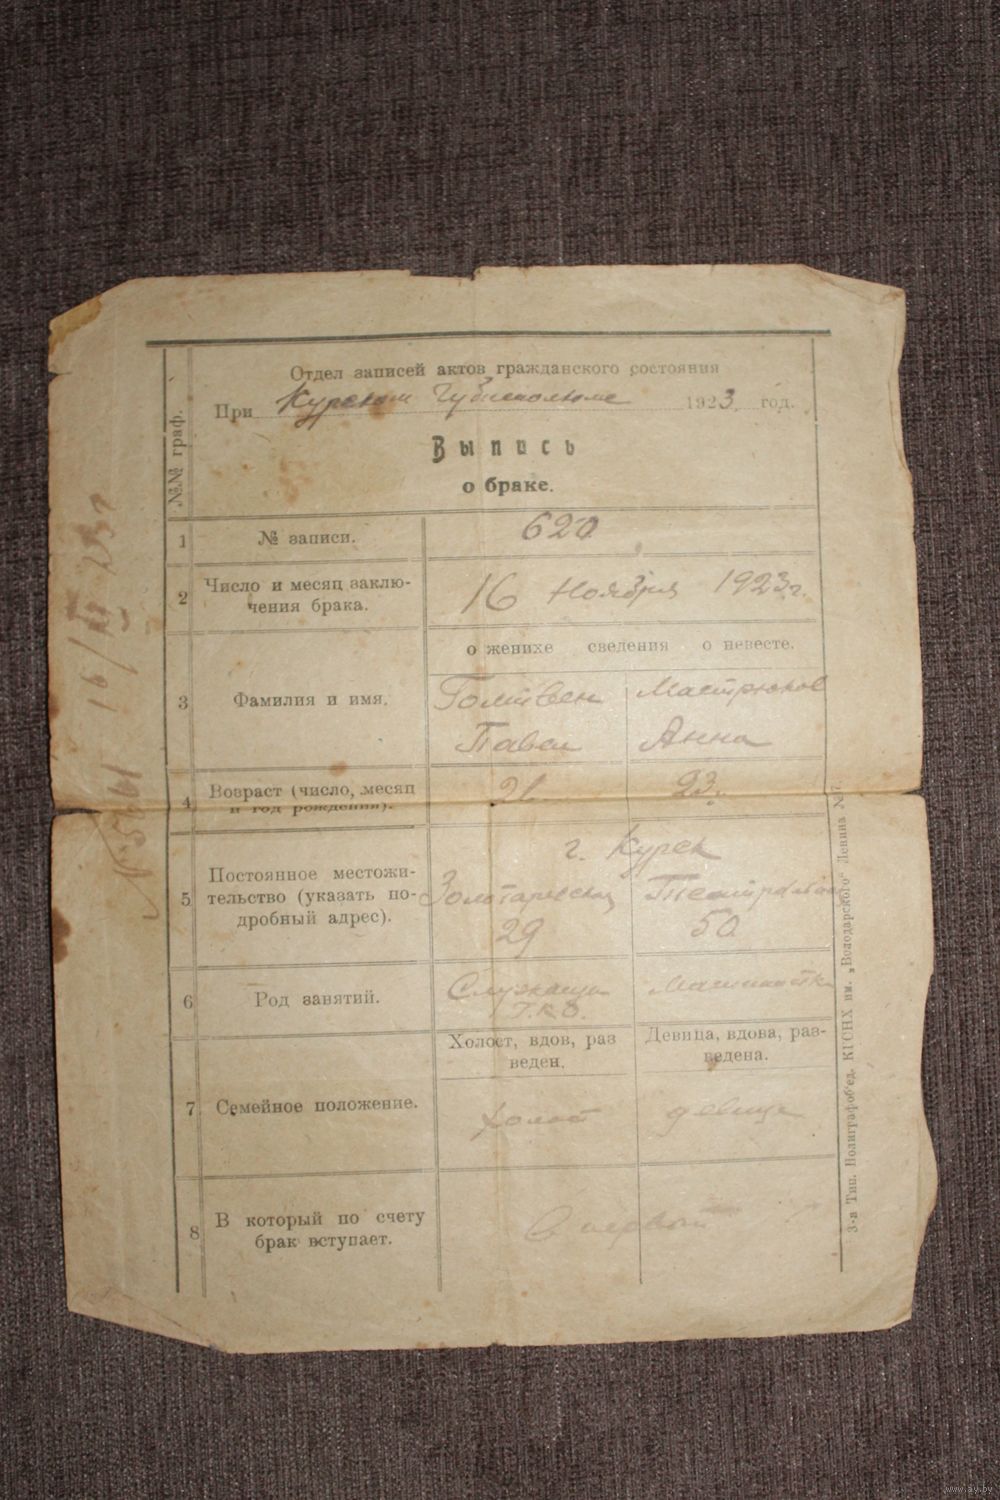 Отдел записей актов гражданского состояния
При Курском Губисполкоме 1923 год.
Выпись
о браке.
№№ граф.
1 № записи. 620
2 Число и месяц заклю-
чения брака. 16 Ноября 1923 г.
о женихе сведения о невесте.
3 Фамилия и имя.
Павел Анна
4 Возраст (число, месяц
и год рождения). 21 23.
г. Курск
5 Постоянное местожи-
тельство (указать по-
дробный адрес).
29 50
6 Род занятий. Служащий Машинистка
Холост, вдов, раз
веден.
Девица, вдова, раз-
ведена.
7 Семейное положение. холост девица
8 В который по счету
брак вступает. в первый
3-я Тип. Полиграфоб'ед. КГСНХ им. „Володарского" Ленина №
16/XI 23 г
www.ay.by